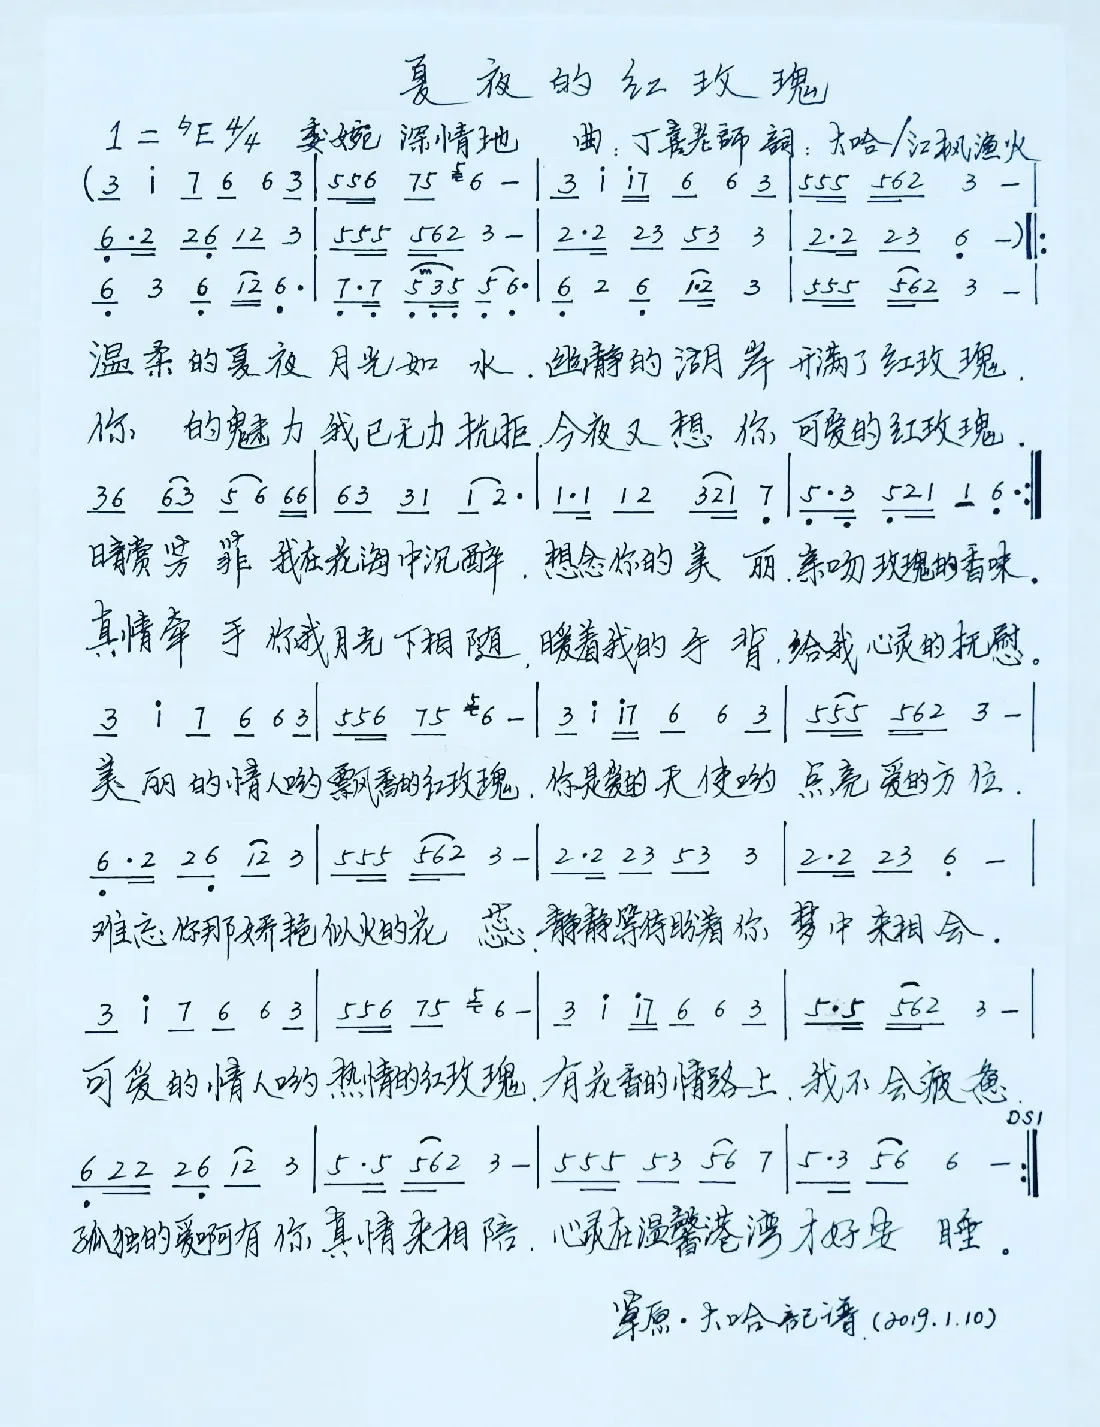 夏夜的红玫瑰
1=♭E 4/4 委婉 深情地 曲:丁喜老師 詞:大哈/江枫漁火
(3 i 7 6 6 3 | 556 75 5 6 - | 3 i i7 6 6 3 | 555 562 3 - |
6·2 26 12 3 | 555 562 3 - | 2·2 23 53 3 | 2·2 23 6 -) ‖:
6 3 6 12 6· | 7·7 535 56· | 6 2 6 1·2 3 | 555 562 3 - |
温柔的夏夜 月光如 水.幽静的湖月岸 开满了红玫瑰.
你 的魅力 我已无力抗拒.今夜又想 你 可爱的红玫瑰.
36 63 56 66 | 63 31 12· | 1·1 12 321 7 | 5·3 521 1 6· :‖
暗赏芳菲 我在花海中沉醉.想念你的美 丽.亲吻玫瑰的香味.
真情牵 手 你我月光下相随,暖着我的手 背.给我心灵的抚慰。
3 i 7 6 6 3 | 556 75 5 6 - | 3 i i7 6 6 3 | 555 562 3 - |
美丽的情人哟飘香的红玫瑰.你是爱的天使哟 点亮爱的方位.
6·2 26 12 3 | 555 562 3 - | 2·2 23 53 3 | 2·2 23 6 - |
难忘你那娇艳似火的花 蕊.静静等待盼着你 梦中来相会.
3 i 7 6 6 3 | 556 75 5 6 - | 3 i i7 6 6 3 | 5·5 562 3 - |
可爱的情人哟热情的红玫瑰.有花香的情路上.我不会疲惫.
DS1
622 26 12 3 | 5·5 562 3 - | 555 53 56 7 | 5·3 56 6 - :‖
孤独的爱啊有你真情来相陪.心灵在温馨港湾才好安 睡.
草原·大哈記谱.(2019.1.10)